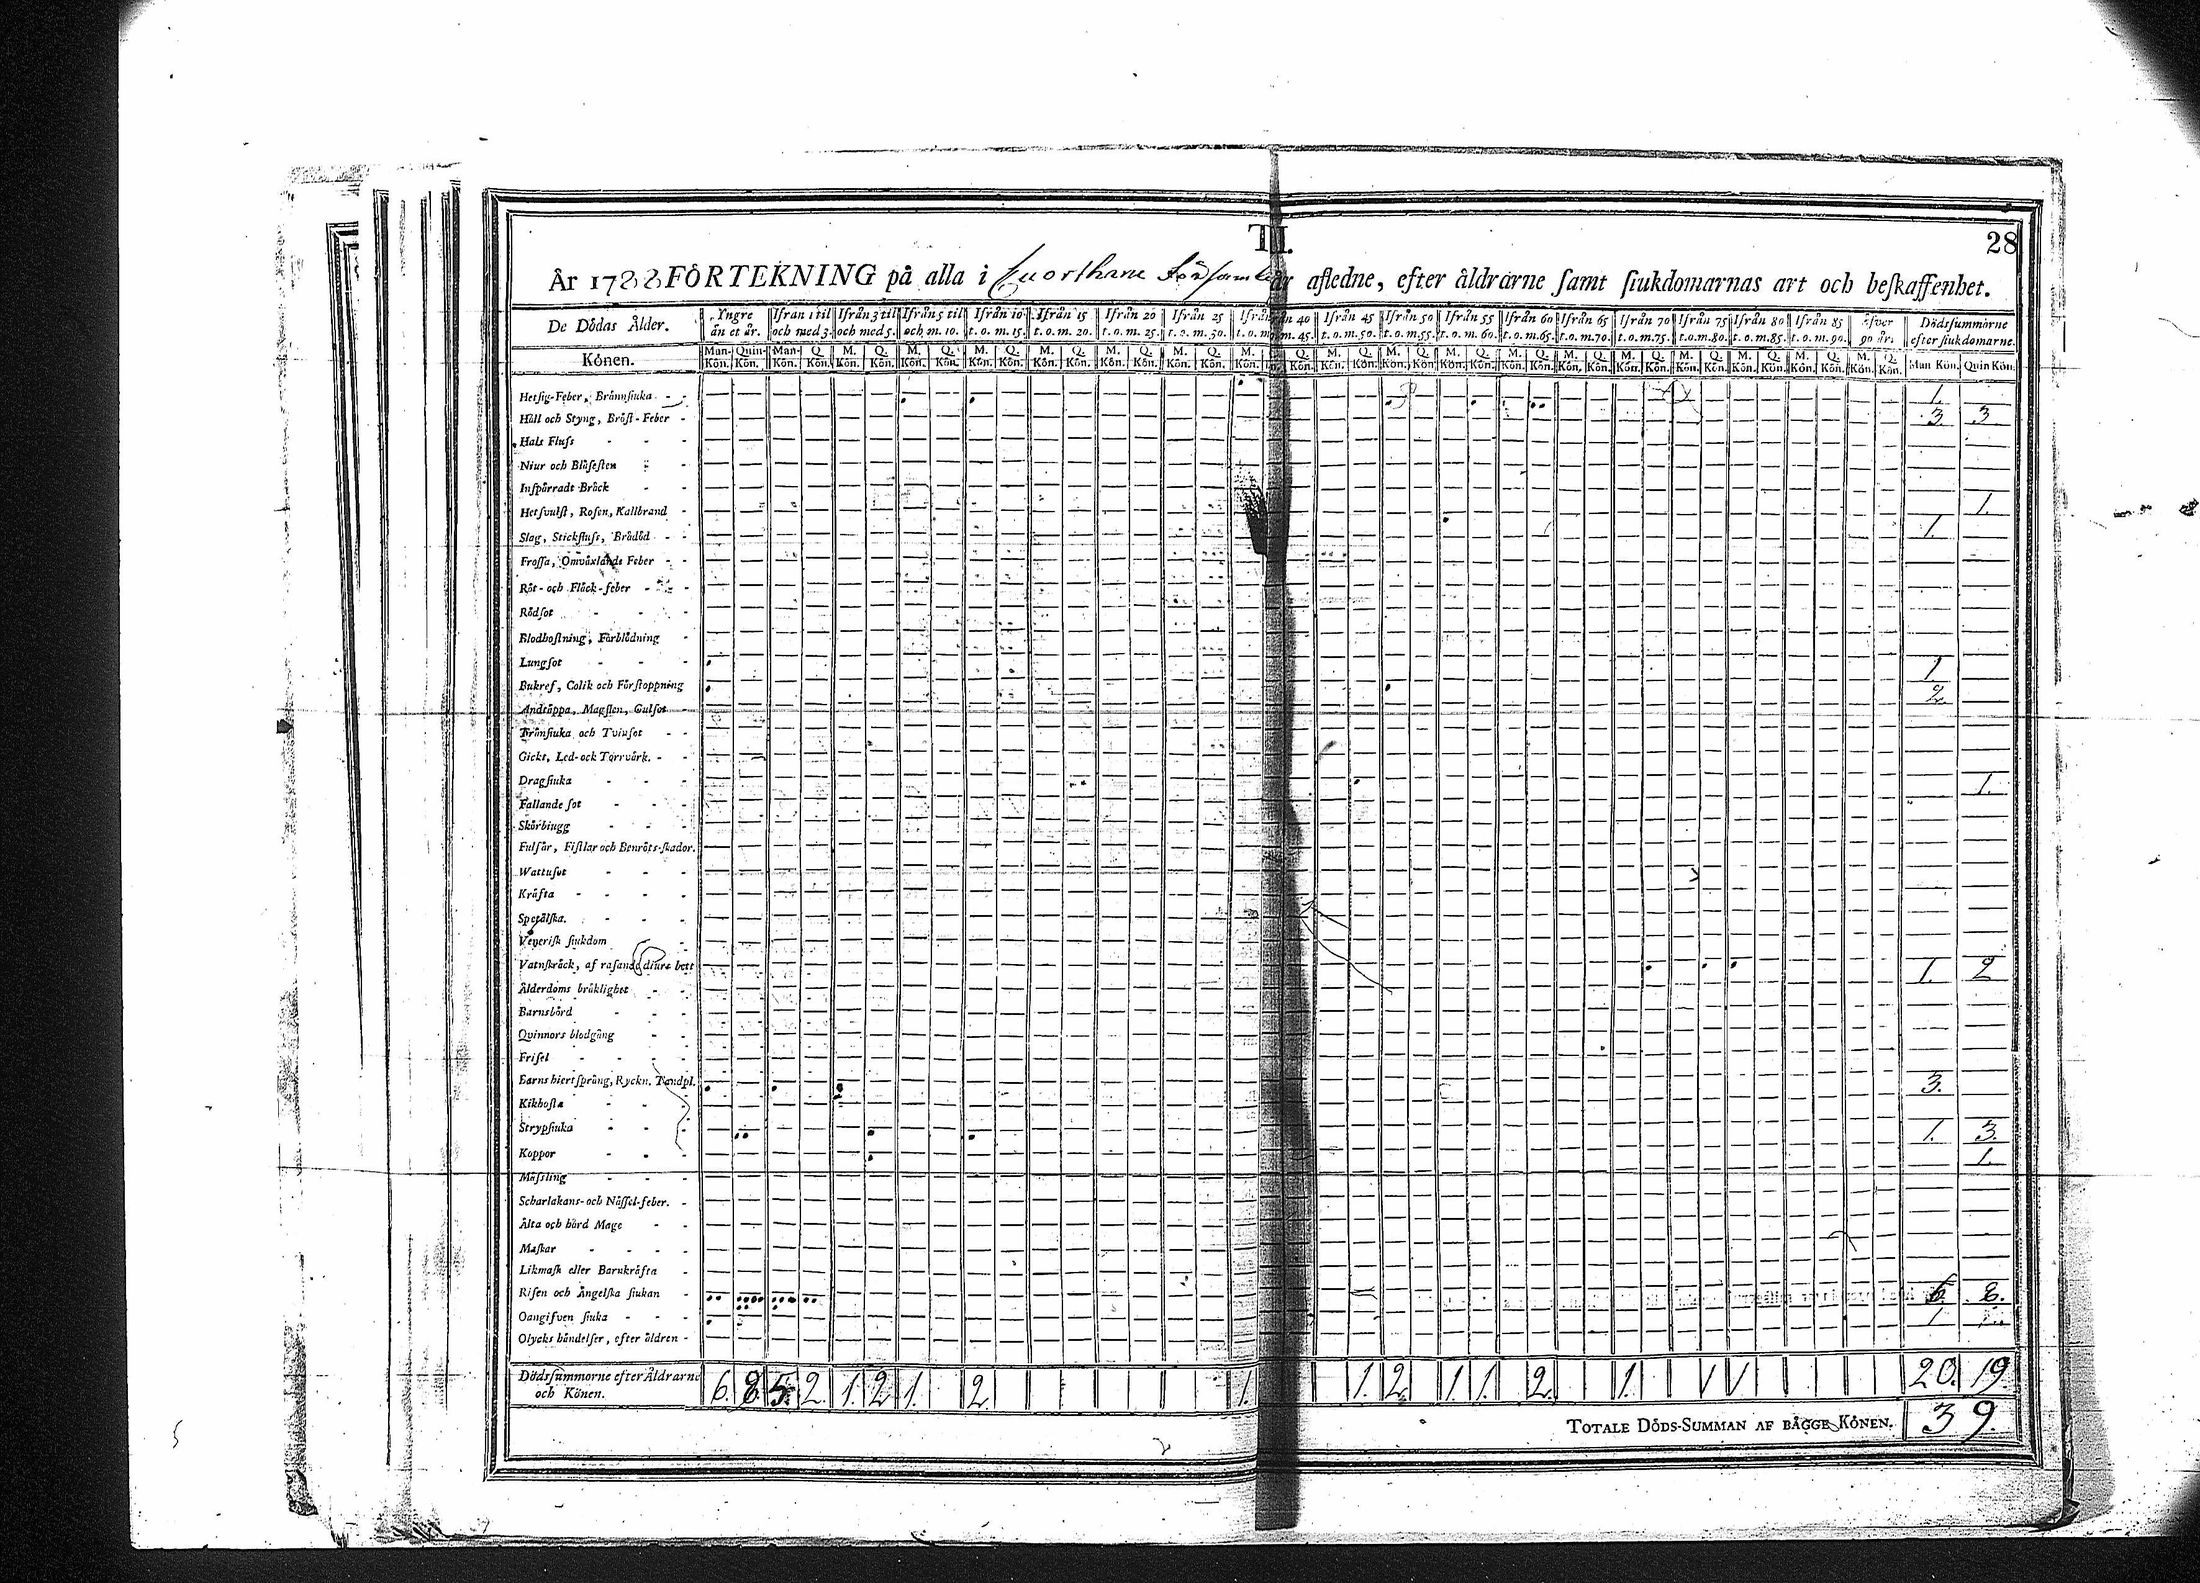 28
År 1788 FÖRTEKNING på alla i Cuorthane aflednе, efter åldrarne ſamt ſiukdomarnas art och beſkaffenhet.
De Dödas Ålder. Yngre än et år. Ifrån 1 til och med 3. Ifrån 3 til och med 5. Ifrån 5 til och m. 10. Ifrån 10 t. o. m. 15. Ifrån 15 t. o. m. 20. Ifrån 20 t. o. m. 25. Ifrån 25 t. o. m. 30. Ifrån 40 t. o. m. 45. Ifrån 45 t. o. m. 50. Ifrån 50 t. o. m. 55. Ifrån 55 t. o. m. 60. Ifrån 60 t. o. m. 65. Ifrån 65 t. o. m. 70. Ifrån 70 t. o. m. 75. Ifrån 75 t. o. m. 80. Ifrån 80 t. o. m. 85. Ifrån 85 t. o. m. 90. öfver 90 år. Dödsſummorne efter ſiukdomarne.
Könen. Man-Kön. Quin-Kön. Man-Kön. Q. Kön. M. Kön. Q. Kön. M. Kön. Q. Kön. M. Kön. Q. Kön. M. Kön. Q. Kön. M. Kön. Q. Kön. M. Kön. Q. Kön. M. Kön. Q. Kön. M. Kön. Q. Kön. M. Kön. Q. Kön. M. Kön. Q. Kön. M. Kön. Q. Kön. M. Kön. Q. Kön. M. Kön. Q. Kön. M. Kön. Q. Kön. M. Kön. Q. Kön. M. Kön. Q. Kön. M. Kön. Q. Kön. Man Kön. Quin Kön.
Hetſig-Feber, Brännſiuka 1.
Håll och Styng, Bröſt-Feber 3. 3
Hals Fluſs
Niur och Blåſeſten
Inſpärradt Bråck
Hetſvulſt, Roſen, Kallbrand 1.
Slag, Stickfluſs, Brådöd 1.
Froſſa, Omväxlande Feber
Röt- och Fläck-feber
Rödſot
Blodhoſtning, Förblödning
Lungſot 1.
Bukref, Colik och Förſtoppning 2.
Andtäppa, Magſten, Gulſot
Trånſiuka och Tvinſot
Gickt, Led- ock Torrvärk.
Dragſiuka 1.
Fallande ſot
Skörbiugg
Fulſår, Fiſtlar och Benröts-ſkador.
Wattuſot
Kräfta
Spetälſka.
Veneriſk ſiukdom
Vatnſkräck, af raſande diurs bett 1. 2
Ålderdoms bräklighet
Barnsbörd
Qvinnors blodgång
Friſel
Barns hiertſprång, Ryckn. Tandpl. 3.
Kikhoſta
Strypſiuka 1. 3.
Koppor 1.
Mäſsling
Scharlakans- och Näſſel-feber.
Älta och hård Mage
Maſkar
Likmaſk eller Barnkräfta
Riſen och Ängelſka ſiukan 6. 8.
Oangifven ſiuka 1
Olycks händelſer, efter åldren
Dödsſummorne efter Åldrarne och Könen. 6. 8 5. 2 1. 2 1. 2 1. 1. 2 1 1. 2. 1. 1 1 20. 19.
TOTALE DÖDS-SUMMAN AF BÄGGE KÖNEN. 39.